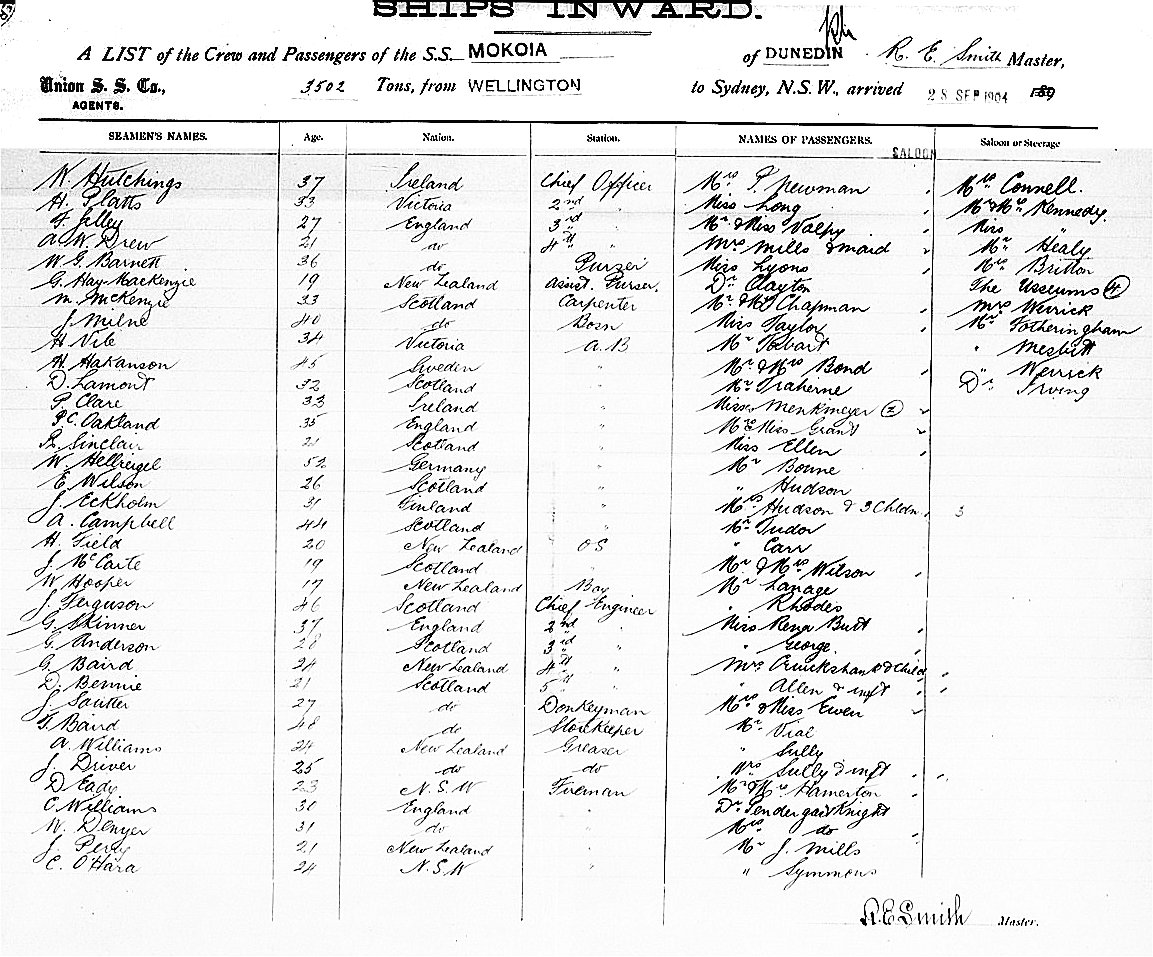 SHIPS INWARD.
A LIST of the Crew and Passengers of the S.S. MOKOIA of DUNEDIN R. E. Smith Master,
Union S. S. Co., AGENTS. 3502 Tons, from WELLINGTON to Sydney, N.S.W., arrived 28 SEP 1904 189
SEAMEN'S NAMES. Age. Nation. Station. NAMES OF PASSENGERS. Saloon or Steerage
SALOON
W. Hutchings 37 Ireland Chief Officer Mrs P. Newman Mrs Connell.
H. Platts 33 Victoria 2nd " Miss Long Mr & Mrs Kennedy.
F. Jelley 27 England 3rd " Mr & Miss Valpy Miss "
A. W. Drew 21 do 4th " Mrs Mills & maid Mr Healy
W G. Barnett 36 do Purser Miss Lyons Mrs Britton
G. Hay-Mackenzie 19 New Zealand Assist. Purser. Dr Clayton The Usseums (4)
M. McKenzie 33 Scotland Carpenter Mr & Mrs Chapman Mrs Werrick
J. Milne 40 do Bosn Miss Taylor Mr Fotheringham
H Vile 34 Victoria A.B Mr Tobart " Mesbitt
H. Hakanson 45 Sweden " Mr & Mrs Bond " Werrick
D. Lamont 32 Scotland " Mr Traherne Dr Irving
P Clare 33 Ireland " Misses Menkmeyer (2)
P.C. Oakland 35 England " Mrs & Miss Grant
Sinclair 21 Scotland " Miss Ellen
W. Hellreigel 52 Germany " Mr Bonne
E Wilson 26 Scotland " " Hudson
J. Eckholm 31 Finland " Mrs Hudson & 3 Chldn. 3
A. Campbell 44 Scotland " Mr Tudor
H. Field 20 New Zealand OS " Carr
J. McCarte 19 Scotland " Mr & Mrs Wilson
W Hooper 17 New Zealand Boy Mr Lanage
J. Ferguson 46 Scotland Chief Engineer " Rhodes
G. Skinner 37 England 2nd " Miss Rena Butt
G. Anderson 28 Scotland 3rd " " George.
G. Baird 24 New Zealand 4th " Mrs Cruickshank & Child
D. Bennie 21 Scotland 5th " Allen & inft
J Sautter 27 do Donkeyman Mrs & Miss Ewen
T. Baird 48 do Storekeeper Mr Vial
A. Williams 24 New Zealand Greaser " Sully
J. Driver 25 do do Mrs Sully & inft
D Eady 23 N.S.W Fireman Mr & Mrs Hamerton
C Williams 30 England " Dr Knight
W. Denyer 31 do " Mrs do
J. Percy 21 New Zealand " Mr J. Mills
C. O'Hara 24 N.S.W " " Symmons
R.E Smith Master.